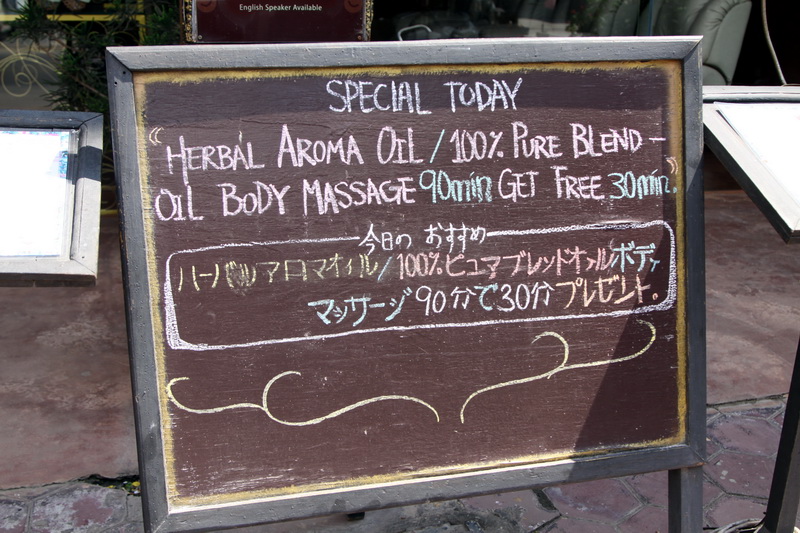 English Speaker Available
SPECIAL TODAY
"HERBAL AROMA OIL / 100% PURE BLEND -
OIL BODY MASSAGE 90min GET FREE 30min."
今日の おすすめ
ハーバルアロマオイル/100%ピュマブレッドオイルボディ
マッサージ 90分で30分プレゼント.